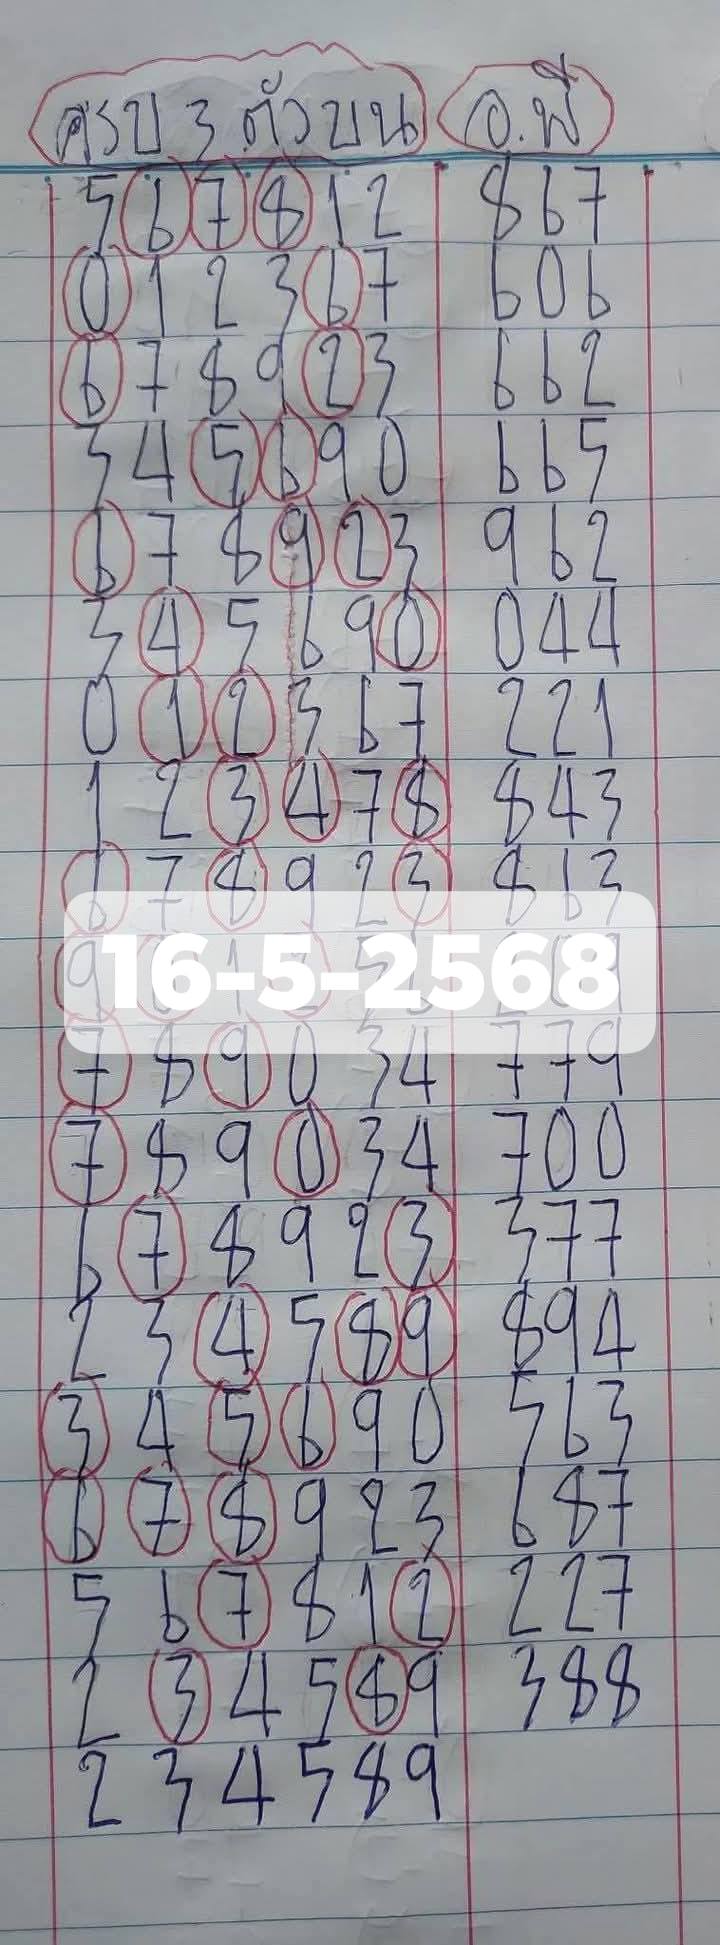 ครบ 3 ตัวบน อ.พี
567812 867
012367 606
678923 662
345690 665
678923 962
345690 044
012367 221
123478 843
678923 863
16-5-2568
789034 779
789034 700
678923 377
234589 894
345690 563
678923 687
567812 227
234589 388
234589